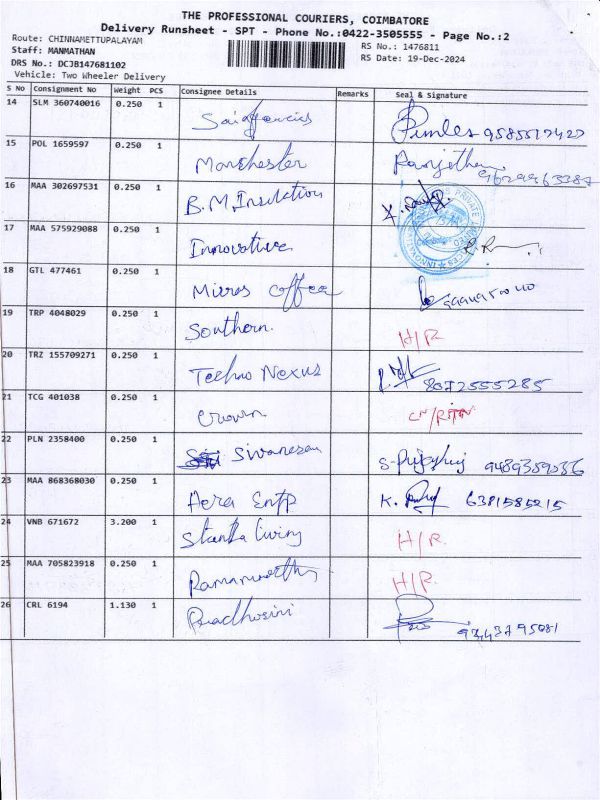 THE PROFESSIONAL COURIERS, COIMBATORE
Delivery Runsheet - SPT - Phone No.:0422-3505555 - Page No.:2
Route: CHINNAMETTUPALAYAM
RS No.: 1476811
Staff: MANMATHAN
RS Date: 19-Dec-2024
DRS No.: DCJB147681102
Vehicle: Two Wheeler Delivery
S No Consignment No Weight PCS Consignee Details Remarks Seal & Signature
14 SLM 360740016 0.250 1 9585517427
15 POL 1659597 0.250 1 Manchester
16 MAA 302697531 0.250 1 B.M. Insulation
17 MAA 575929088 0.250 1 Innovative
18 GTL 477461 0.250 1 Micros coffee
19 TRP 4048029 0.250 1 Southern H/R
20 TRZ 155709271 0.250 1 Techno Nexus 8072555285
21 TCG 401038 0.250 1 Crown
22 PLN 2358400 0.250 1 Sivanesan 9489359036
23 MAA 868368030 0.250 1 Aera Entp K. 6381585215
24 VNB 671672 3.200 1 H/R.
25 MAA 705823918 0.250 1 Ramamoorthy H/R.
26 CRL 6194 1.130 1 9344379 5081